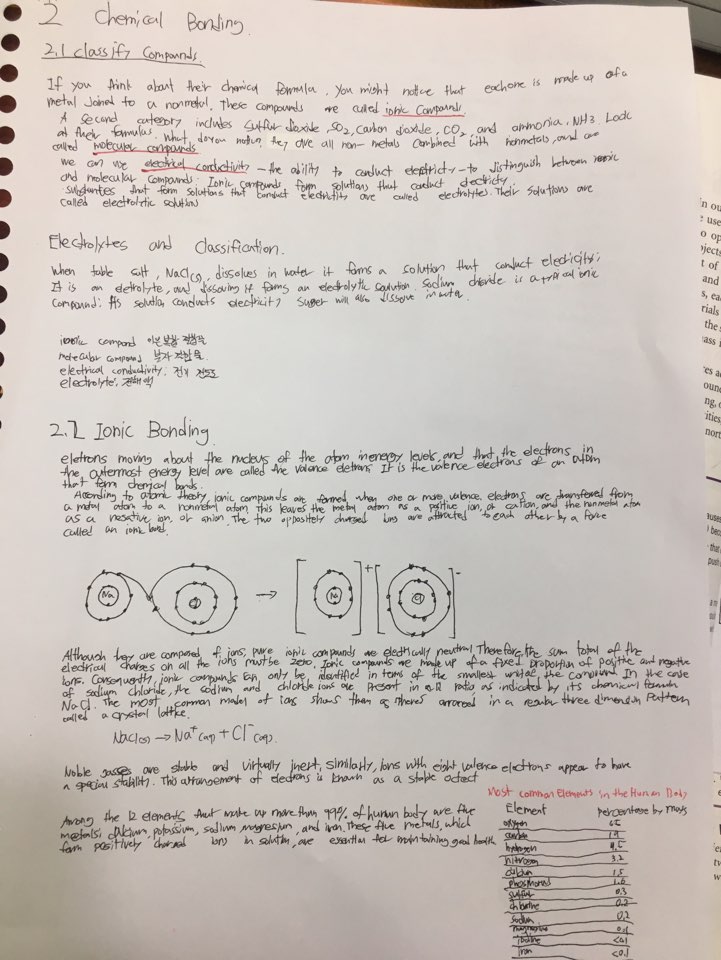 2 Chemical Bonding
2.1 classify Compounds
If you think about their chemical formula, you might notice that each one is made up of a
metal joined to a nonmetal. These compounds are called ionic compounds.
A second category includes sulfur dioxide, SO2, Carbon dioxide, CO2, and ammonia, NH3. Look
at their formulas. What do you notice, they are all non-metals combined with nonmetals, and are
called molecular compounds
we can use electrical conductivity - the ability to conduct electricity - to distinguish between ionic
and molecular compounds. Ionic compounds form solutions that conduct electricity.
substances that form solutions that conduct electricity are called electrolytes. Their solutions are
called electrolytic solutions
Electrolytes and classification.
When table salt, NaCl(s), dissolves in water it forms a solution that conduct electricity.
It is an eletrolyte, and dissolving it forms an electrolytic solution. Sodium chloride is a typical ionic
compound: its solution conducts electricity. Suger will also dissolve in water.
ionic compound 이온 결합 화합물
molecular compound 분자 화합물
electrical conductivity: 전기 전도도
electrolyte: 전해액
2.2 Ionic Bonding.
eletrons moving about the nucleus of the atom in energy levels, and that the electrons in
the outermost energy level are called the valence eletrons. It is the valence electrons of an atom
that form chemical bonds.
According to atomic theory, ionic compounds are formed when one or more valence electrons are transferred from
a metal atom to a nonmetal atom. This leaves the metal atom as a positive ion, or cation, and the nonmetal atom
as a negative ion, or anion. The two oppositely charged ions are attracted to each other by a force
called an ionic bond.
Na Cl → [Na]+ [Cl]-
Although they are composed of ions, pure ionic compounds are electrically neutral. Therefore, the sum total of the
electrical charges on all the ions must be zero. Ionic compounds are made up of a fixed proportion of positive and negative
ions. Consequently, ionic compounds can only be identified in terms of the smallest unit of the compound. In the case
of sodium chloride, the sodium and chloride ions are present in a 1:1 ratio as indicated by its chemical formula
NaCl. The most common model of ions shows them as spheres arranged in a regular three dimension pattern
called a crystal lattice.
NaCl(s) → Na+(aq) + Cl-(aq).
Noble gasses are stable and virtually inert, similarly, ions with eight valence electrons appear to have
a special stability. This arrangement of electrons is known as a stable octect
Most common Elements in the Human Body
Among the 12 elements that make up more than 99% of human body are five
metals: calcium, potassium, sodium magnesium, and iron. These five metals, which
form positively charged ions in solution, are essential for maintaining good health
Element percentage by mass
oxygen 65
carbon 19
hydrogen 9.5
nitrogen 3.2
calcium 1.5
phosphorus 1.0
sulfur 0.3
chlorine 0.2
sodium 0.2
magnesium 0.1
iodine <0.1
iron <0.1